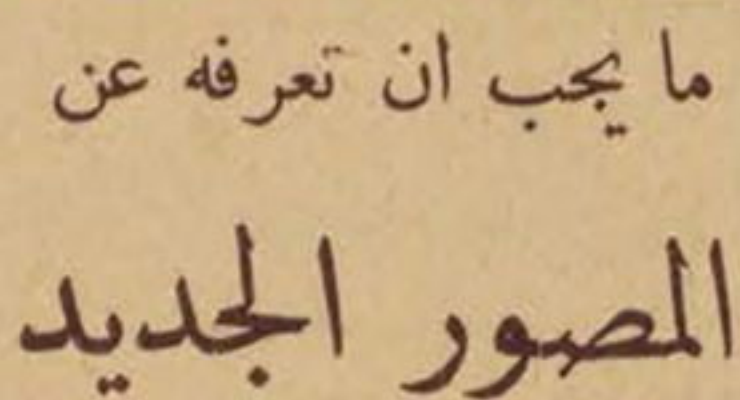 ما يجب ان تعرفه عن
المصور الجديد